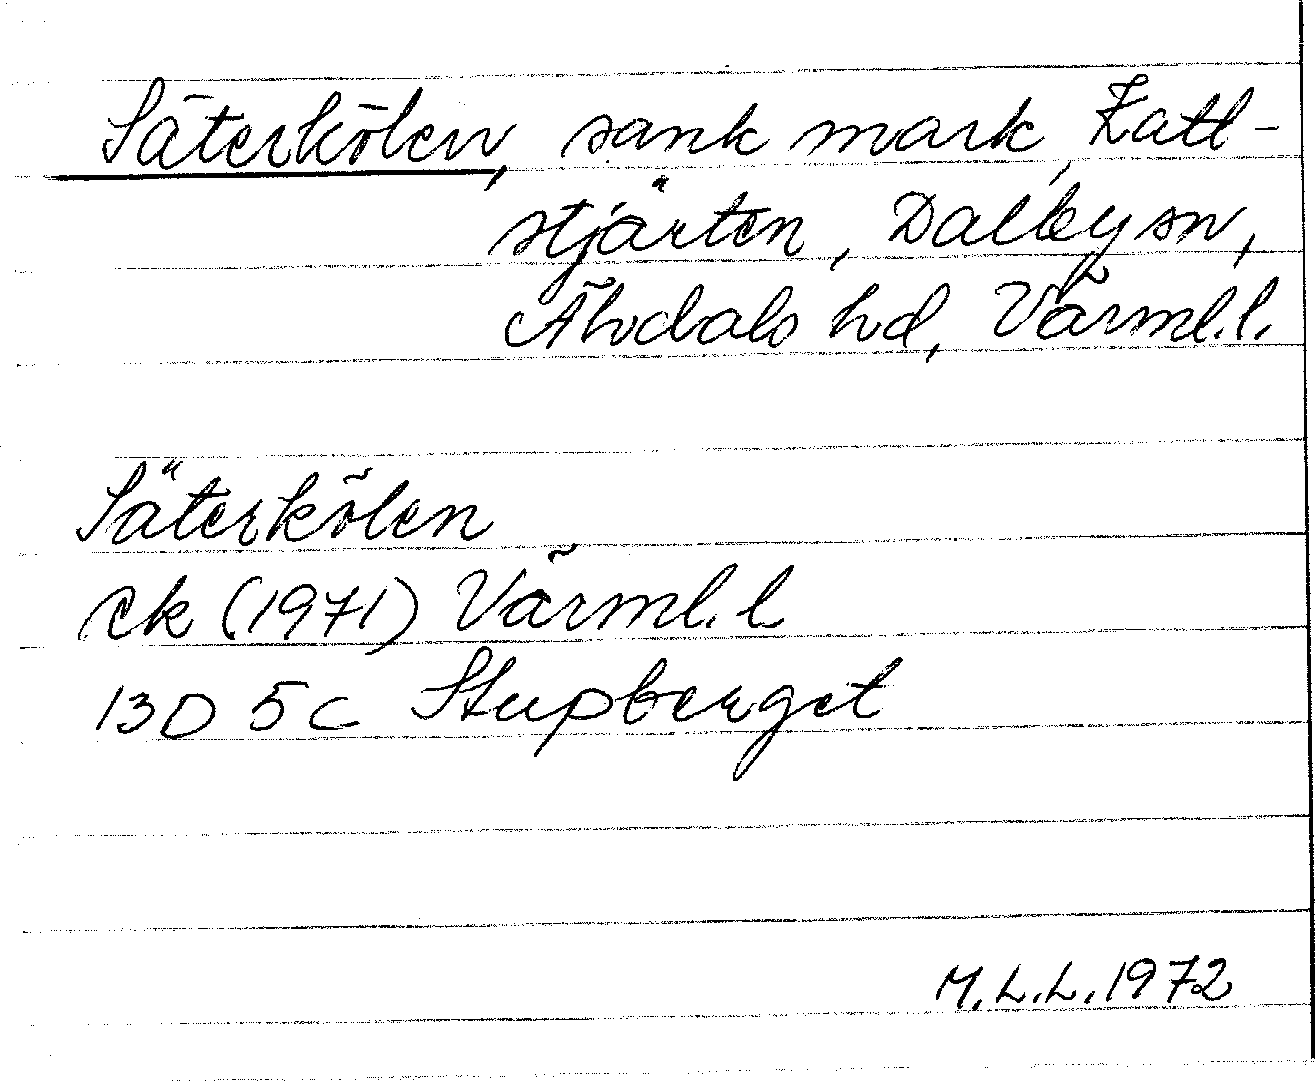 Säterkölen, sank mark, Katt-
stjärten, Dalby sn,
Älvdals hd, Värml.l.
Säterkölen
ek (1971) Värml. l
13D 5c Stupberget
M.L.L. 1972